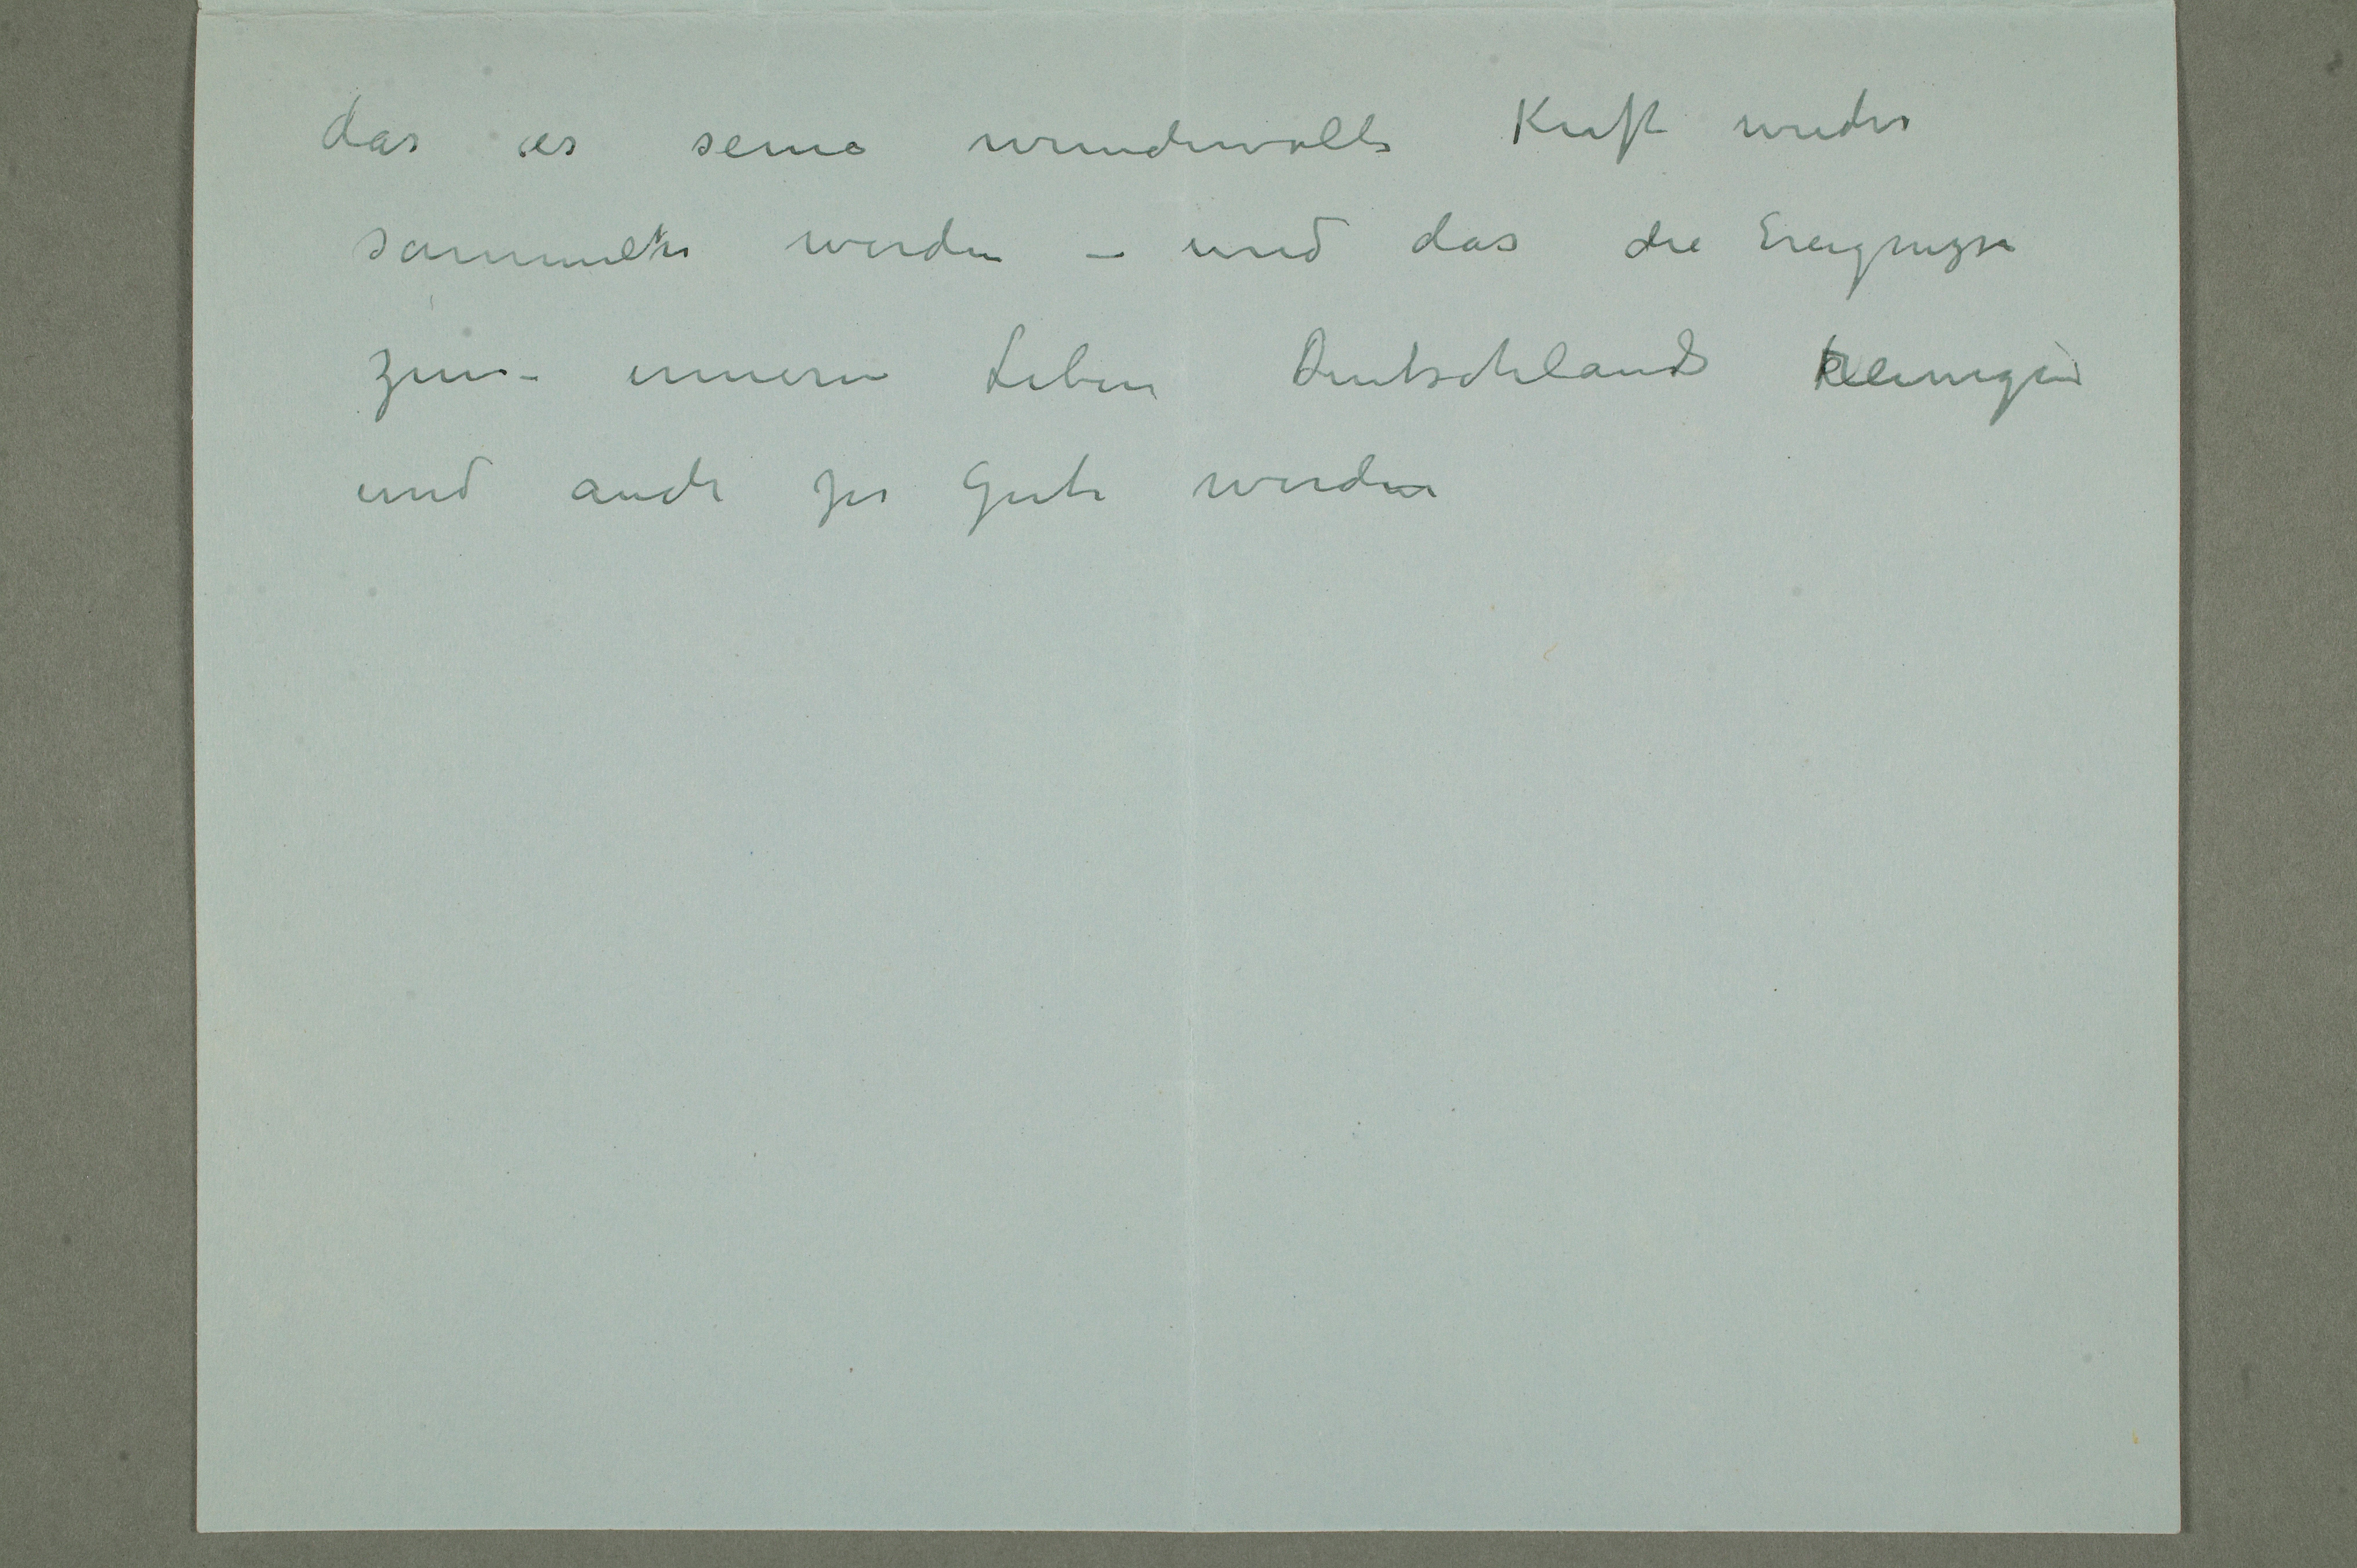 das es seine wundervolle Kraft wieder
sammeln werden – und das die Ereignisse
zum innern Leben Deutschlands Reinigend
und auch zu Gute werden